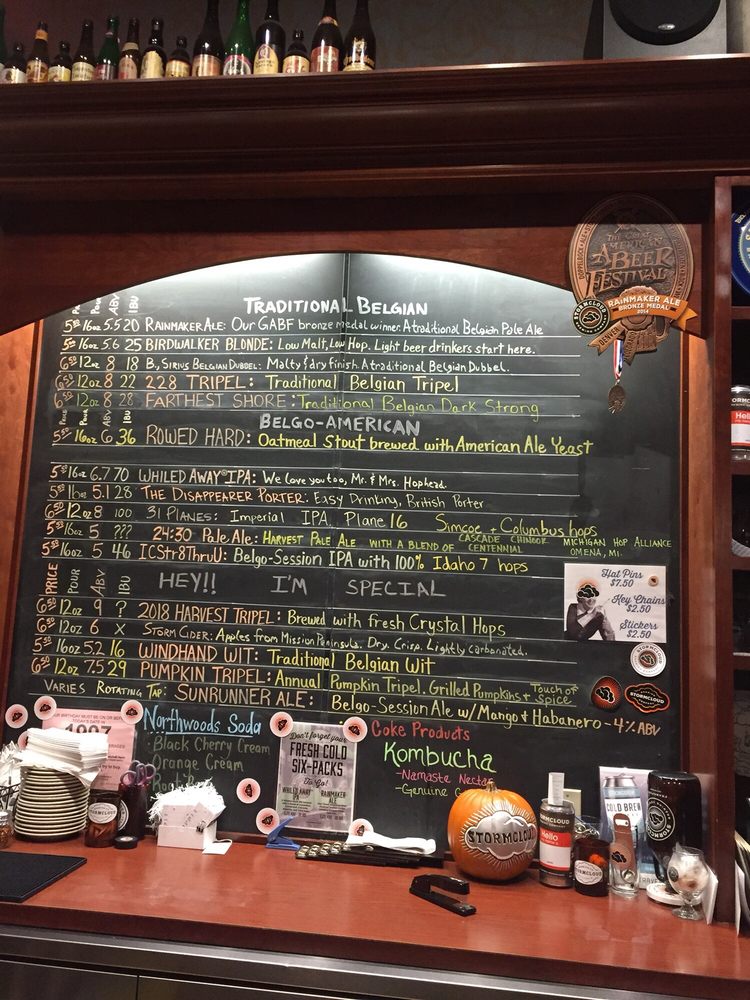 THE GREAT
AMERICAN
BEER
FESTIVAL
RAINMAKER ALE
BRONZE MEDAL
2014
STORMCLOUD
TRADITIONAL BELGIAN
ABV IBU
5⁵⁰ 16oz 5.5 20 RAINMAKER ALE: Our GABF bronze medal winner. A traditional Belgian Pale Ale
5⁵⁰ 16oz 5.6 25 BIRDWALKER BLONDE: Low Malt, Low Hop. Light beer drinkers start here.
6⁵⁰ 12oz 8 18 B. SIRIUS BELGIAN DUBBEL: Malty & dry finish. A traditional Belgian Dubbel.
6⁵⁰ 12oz 8 22 228 TRIPEL: Traditional Belgian Tripel
6⁵⁰ 12oz 8 28 FARTHEST SHORE: Traditional Belgian Dark Strong
PRICE POUR ABV IBU
BELGO-AMERICAN
5⁵⁰ 16oz 6 36 ROWED HARD: Oatmeal Stout brewed with American Ale Yeast
5⁵⁰ 16oz 6.7 70 WHILED AWAY IPA: We love you too, Mr. & Mrs. Hophead.
5⁵⁰ 16oz 5.1 28 THE DISAPPEARER PORTER: Easy Drinking, British Porter
6⁵⁰ 12oz 8 100 31 PLANES: Imperial IPA, Plane 16 Simcoe + Columbus hops
5⁵⁰ 16oz 5 ??? 24:30 Pale Ale: HARVEST PALE ALE WITH A BLEND OF CASCADE CHINOOK CENTENNIAL MICHIGAN HOP ALLIANCE OMENA, MI.
5⁵⁰ 16oz 5 46 ICStr8ThruU: Belgo-Session IPA with 100% Idaho 7 hops
PRICE POUR ABV IBU
HEY!! I'M SPECIAL
6⁵⁰ 12oz 9 ? 2018 HARVEST TRIPEL: Brewed with fresh Crystal Hops
6⁵⁰ 12oz 6 X STORM CIDER: Apples from Mission Peninsula. Dry. Crisp. Lightly carbonated.
5⁵⁰ 16oz 5.2 16 WINDHAND WIT: Traditional Belgian Wit
6⁵⁰ 12oz 7.5 29 PUMPKIN TRIPEL: Annual Pumpkin Tripel. Grilled Pumpkins + Touch of Spice
VARIES ROTATING TAP: SUNRUNNER ALE: Belgo-Session Ale w/ Mango & Habanero - 4% ABV
Hat Pins
$7.50
Key Chains
$2.50
Stickers
$2.50
STORMCLOUD
STORMCLOUD
BIRTHDAY MUST BE ON OR BEFORE
TODAY'S DATE IN
1997
Northwoods Soda
Black Cherry Cream
Orange Cream
Don't forget your
FRESH COLD
SIX-PACKS
To Go!
WHILED AWAY
IPA
RAINMAKER
ALE
Coke Products
Kombucha
-Namaste Nectar
-Genuine
STORMCLOUD
STORMCLOUD
Hello
COLD BREW
STORMCLOUD